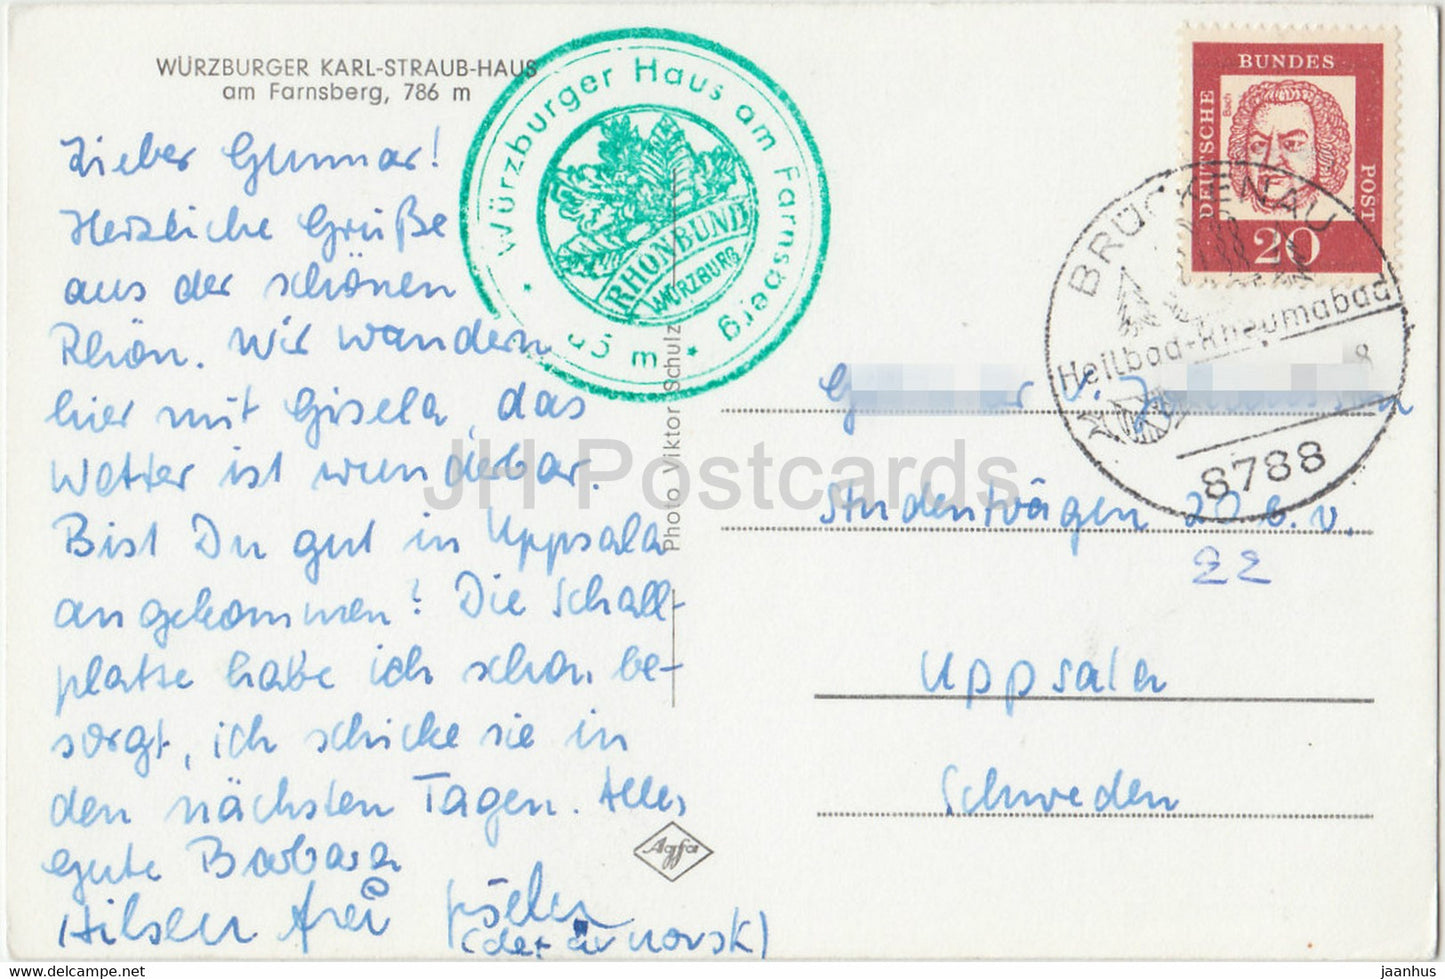 WÜRZBURGER KARL-STRAUB-HAUS
am Farnsberg, 786 m
Lieber Gunnar!
Herzliche Grüße
aus der schönen
Rhön. Wir wandern
hier mit Gisela, das
Wetter ist wunderbar.
Bist Du gut in Uppsala
angekommen? Die Schall-
platte habe ich schon be-
sorgt, ich schicke sie in
den nächsten Tagen. Alles
gute Barbara
Hilsen frei
(det är norsk)
Würzburger Haus am Farnsberg
RHÖNBUND
WÜRZBURG
Photo Viktor Schulz
Agfa
DEUTSCHE
BUNDES
POST
Bach
20
BRÜCKENAU
Heilbad-Rheumabad
8788
Studentvägen 20 b.v.
22
Uppsala
Schweden
JH Postcards
www.delcampe.net
jaanhus